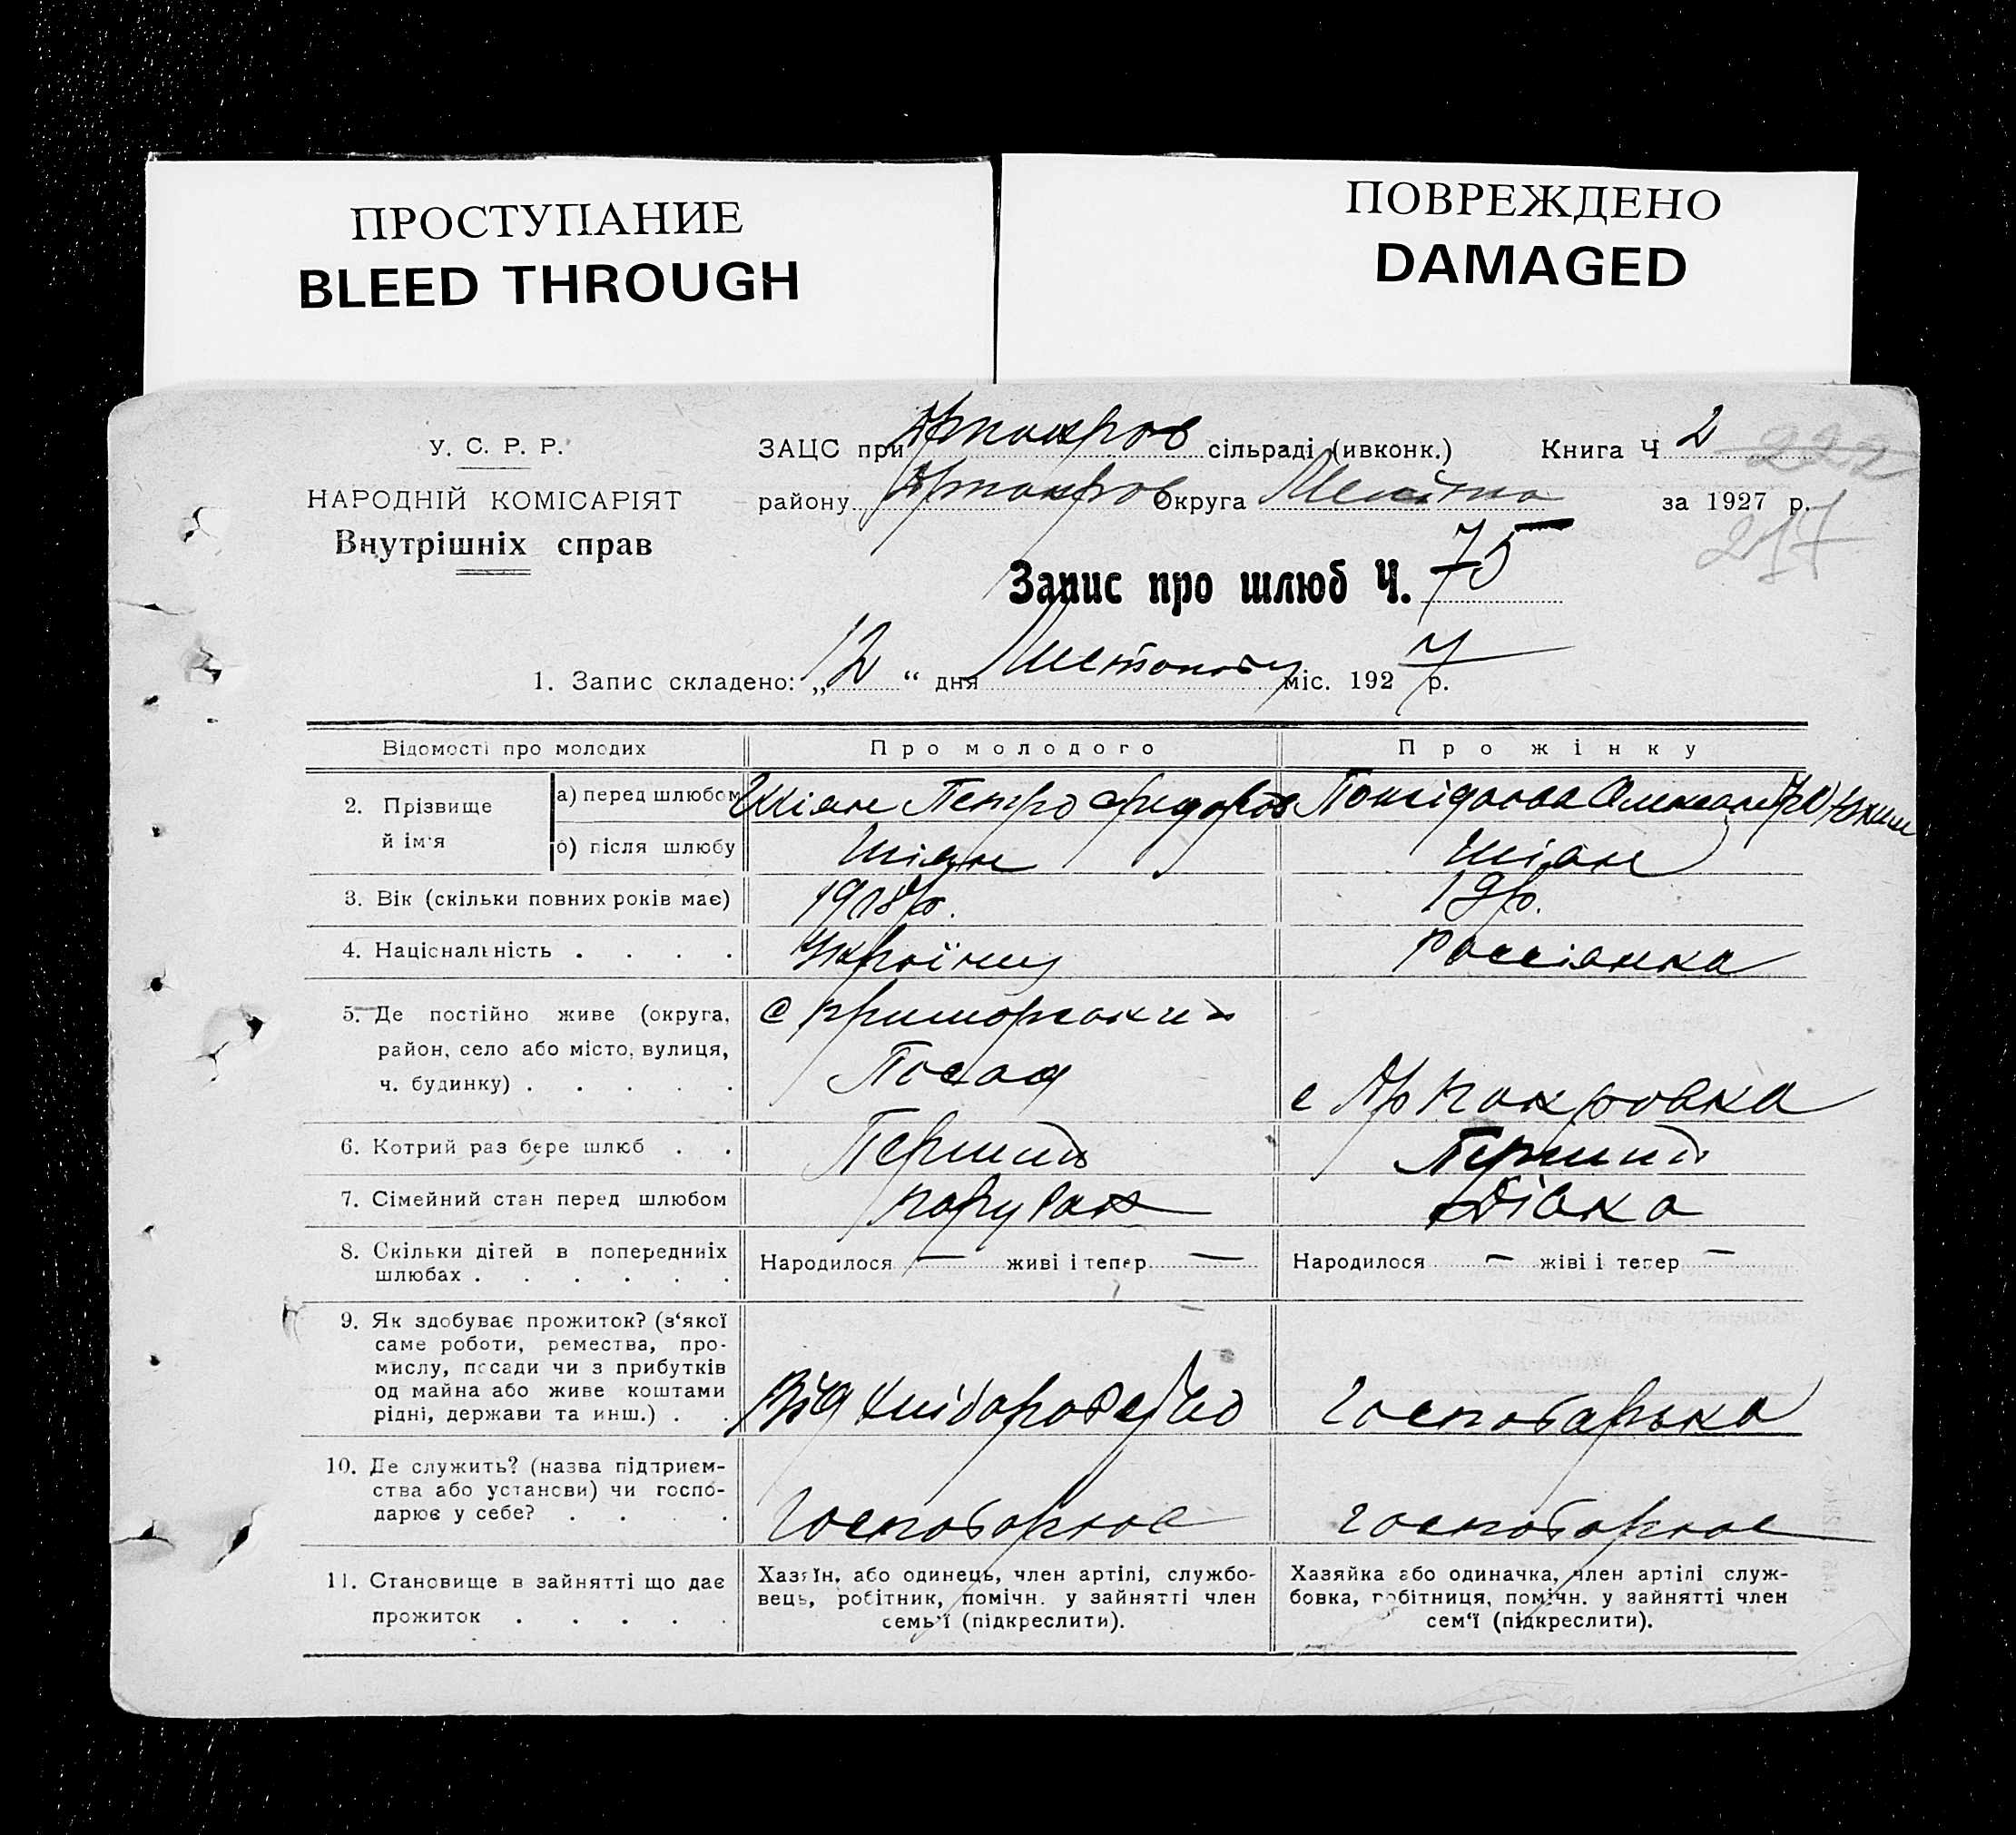 ПРОСТУПАНИЕ
BLEED THROUGH
ПОВРЕЖДЕНО
DAMAGED
У. С. Р. Р.
НАРОДНІЙ КОМІСАРІЯТ
Внутрішніх справ
ЗАЦС при сільраді (ивконк.) Книга Ч 2
222
району округа за 1927 р.
217
Запис про шлюб Ч. 75
1. Запис складено: „12“ дня Листопаду міс. 1927 р.
Відомості про молодих
Про молодого
Про жінку
2. Прізвище й ім'я
а) перед шлюбом
Шіян Петро
б) після шлюбу
Шіян
Шіян
3. Вік (скільки повних років має)
19р.
4. Національність . . . .
Україниц
Россіянка
5. Де постійно живе (округа,
район, село або місто, вулиця,
ч. будинку) . . . . .
с Приморский
Посад
с Ар Покровка
6. Котрий раз бере шлюб . .
Перший
Перший
7. Сімейний стан перед шлюбом
парубак
Дівка
8. Скільки дітей в попередниіх
шлюбах . . . . . .
Народилося — живі і тепер —
Народилося — живі і тепер —
9. Як здобуває прожиток? (з'якої
саме роботи, ремества, про-
мислу, посади чи з прибутків
од майна або живе коштами
рідні, держави та инш.) . .
Від
Господарька
10. Де служить? (назва підприєм-
ства або установи) чи госпо-
дарює у себе? . . . .
Господарює
господарює
11. Становище в зайнятті що дає
прожиток . . . . .
Хазяїн, або одинець, член артілі, службо-
вець, робітник, помічн. у зайнятті член
семь'ї (підкреслити).
Хазяйка або одиначка, член артілі служ-
бовка, робітниця, помічн. у зайнятті член
сем'ї (підкреслити).